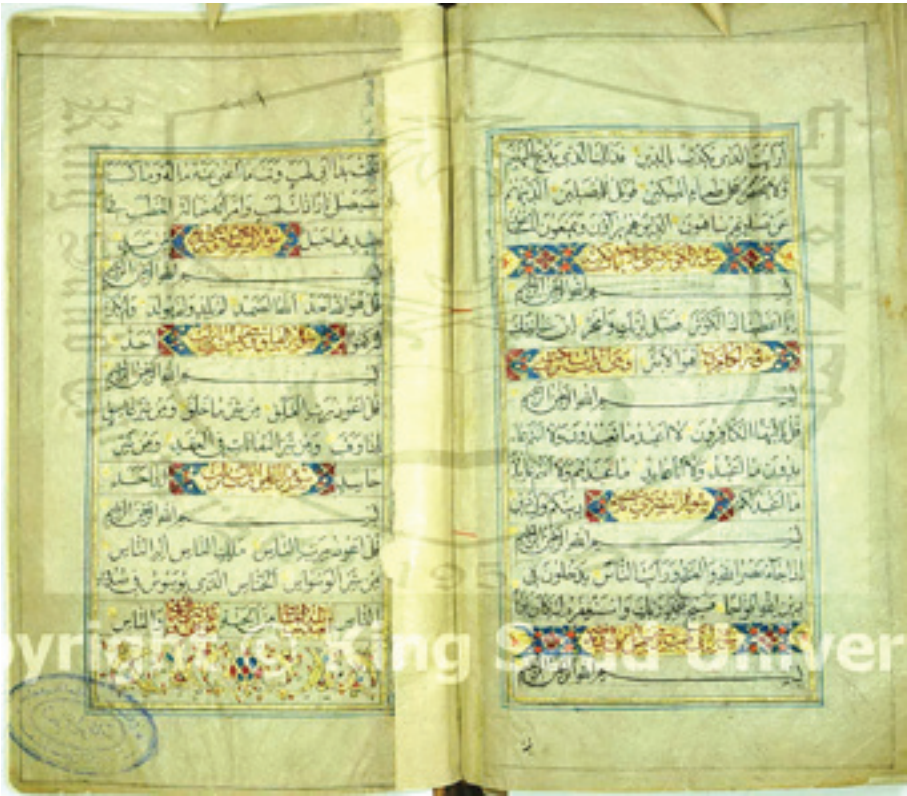 أرأيت الذي يكذب بالدين فذلك الذي يدع اليتيم
ولا يحض على طعام المسكين فويل للمصلين الذين هم
عن صلاتهم ساهون الذين هم يراؤن ويمنعون الماعون
سورة الكوثر
بسم الله الرحمن الرحيم
إنا أعطيناك الكوثر فصل لربك وانحر إن شانئك
هو الأبتر
بسم الله الرحمن الرحيم
قل يا أيها الكافرون لا أعبد ما تعبدون ولا أنتم عا
بدون ما أعبد ولا أنا عابد ما عبدتم ولا أنتم عابدون
ما أعبد لكم سورة النصر دينكم ولي دين
بسم الله الرحمن الرحيم
إذا جاء نصر الله والفتح ورأيت الناس يدخلون في
دين الله أفواجا فسبح بحمد ربك واستغفره إنه كان توابا
بسم الله الرحمن الرحيم
تبت يدا أبي لهب وتب ما أغنى عنه ماله وما كسب
سيصلى نارا ذات لهب وامرأته حمالة الحطب في
جيدها حبل سورة من مسد
بسم الله الرحمن الرحيم
قل هو الله أحد الله الصمد لم يلد ولم يولد ولم يكن
له كفوا سورة الفلق أحد
بسم الله الرحمن الرحيم
قل أعوذ برب الفلق من شر ما خلق ومن شر غاسق
إذا وقب ومن شر النفاثات في العقد ومن شر
حاسد سورة الناس إذا حسد
بسم الله الرحمن الرحيم
قل أعوذ برب الناس ملك الناس إله الناس
من شر الوسواس الخناس الذي يوسوس في صدور
الناس من الجنة والناس
Copyright © King Saud University
195